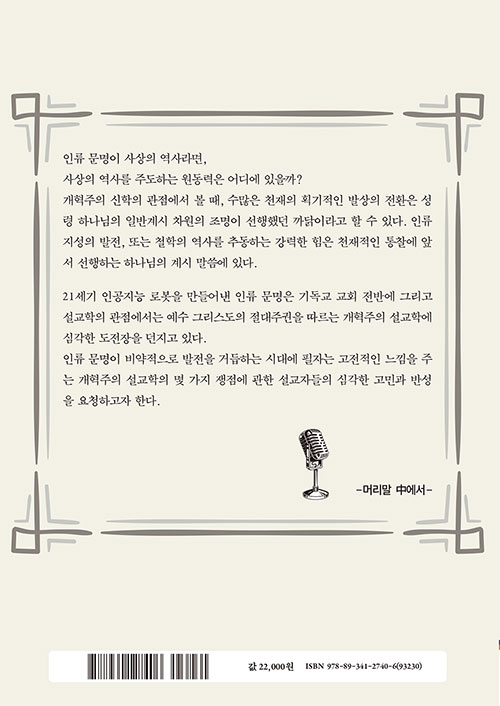 인류 문명이 사상의 역사라면,
사상의 역사를 주도하는 원동력은 어디에 있을까?
개혁주의 신학의 관점에서 볼 때, 수많은 천재의 획기적인 발상의 전환은 성
령 하나님의 일반계시 차원의 조명이 선행했던 까닭이라고 할 수 있다. 인류
지성의 발전, 또는 철학의 역사를 추동하는 강력한 힘은 천재적인 통찰에 앞
서 선행하는 하나님의 계시 말씀에 있다.
21세기 인공지능 로봇을 만들어낸 인류 문명은 기독교 교회 전반에 그리고
설교학의 관점에서는 예수 그리스도의 절대주권을 따르는 개혁주의 설교학에
심각한 도전장을 던지고 있다.
인류 문명이 비약적으로 발전을 거듭하는 시대에 필자는 고전적인 느낌을 주
는 개혁주의 설교학의 몇 가지 쟁점에 관한 설교자들의 심각한 고민과 반성
을 요청하고자 한다.
-머리말 中에서-
값 22,000원 ISBN 978-89-341-2740-6(93230)